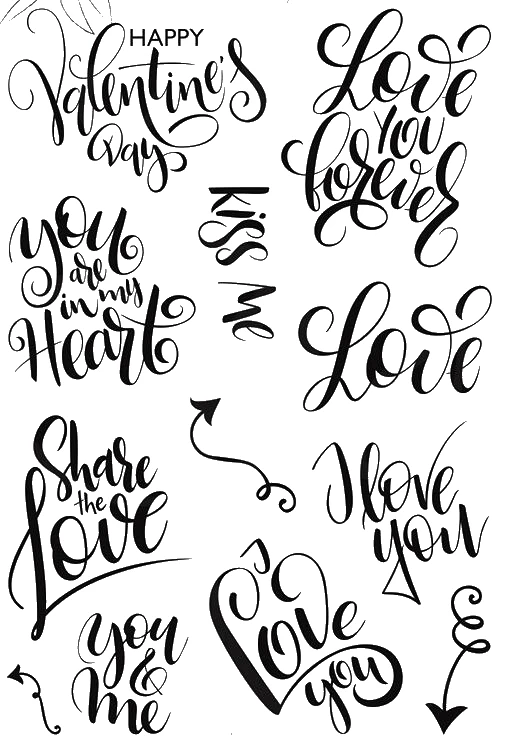 HAPPY
Valentine's
Day
Love
You
forever
Kiss Me
you
are
in my
Heart
Love
Share
the
Love
I love
you
I
Love
you
you
&
me